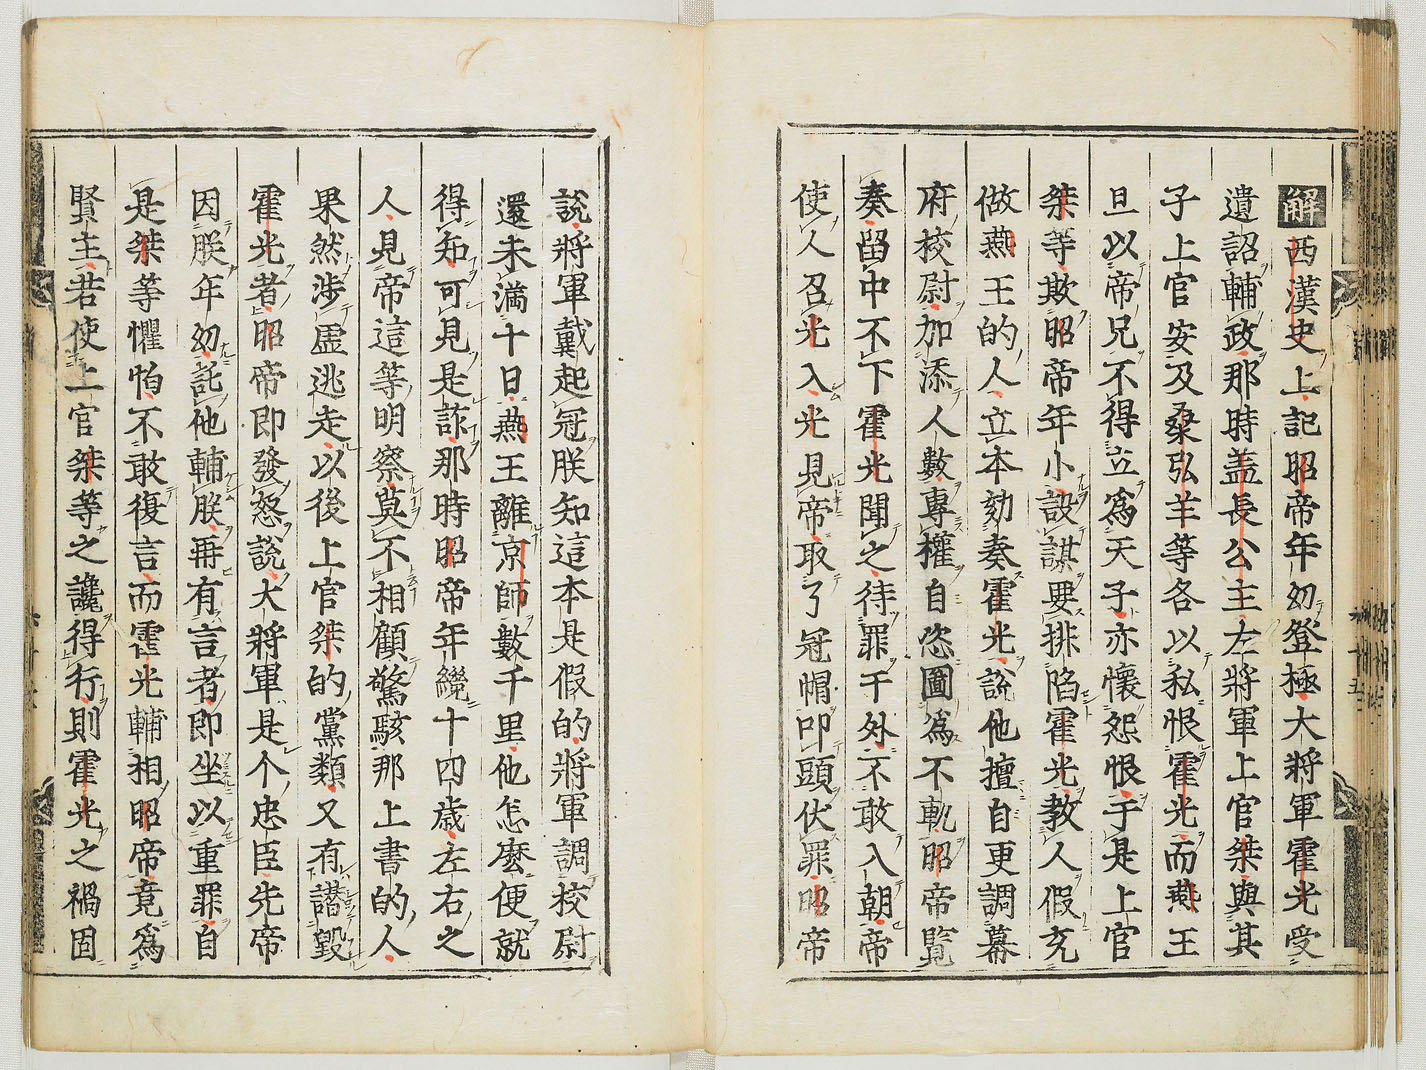 解西漢史上記昭帝年幼登極大將軍霍光受
遺詔輔政那時蓋長公主左將軍上官桀與其
子上官安及桑弘羊等各以私恨霍光而燕王
旦以帝兄不得立爲天子亦懷怨恨于是上官
桀等欺昭帝年小設謀要排陷霍光教人假充
做燕王的人立本劾奏霍光說他擅自更調幕
府校尉加添人數專權自恣圖爲不軌昭帝覽
奏留中不下霍光聞之待罪于外不敢入朝帝
使人召光入光見帝取了冠帽叩頭伏罪昭帝
說將軍戴起冠朕知這本是假的將軍調校尉
還未滿十日燕王離京師數千里他怎麽便就
得知可見是詐那時昭帝年纔十四歲左右之
人見帝這等明察莫不相顧驚駭那上書的人
果然涉虛逃走以後上官桀的黨類又有譖毀
霍光者昭帝即發怒說大將軍是个忠臣先帝
因朕年幼託他輔朕再有言者即坐以重罪自
是桀等懼怕不敢復言而霍光輔相昭帝竟爲
賢主若使上官桀等之讒得行則霍光之禍固